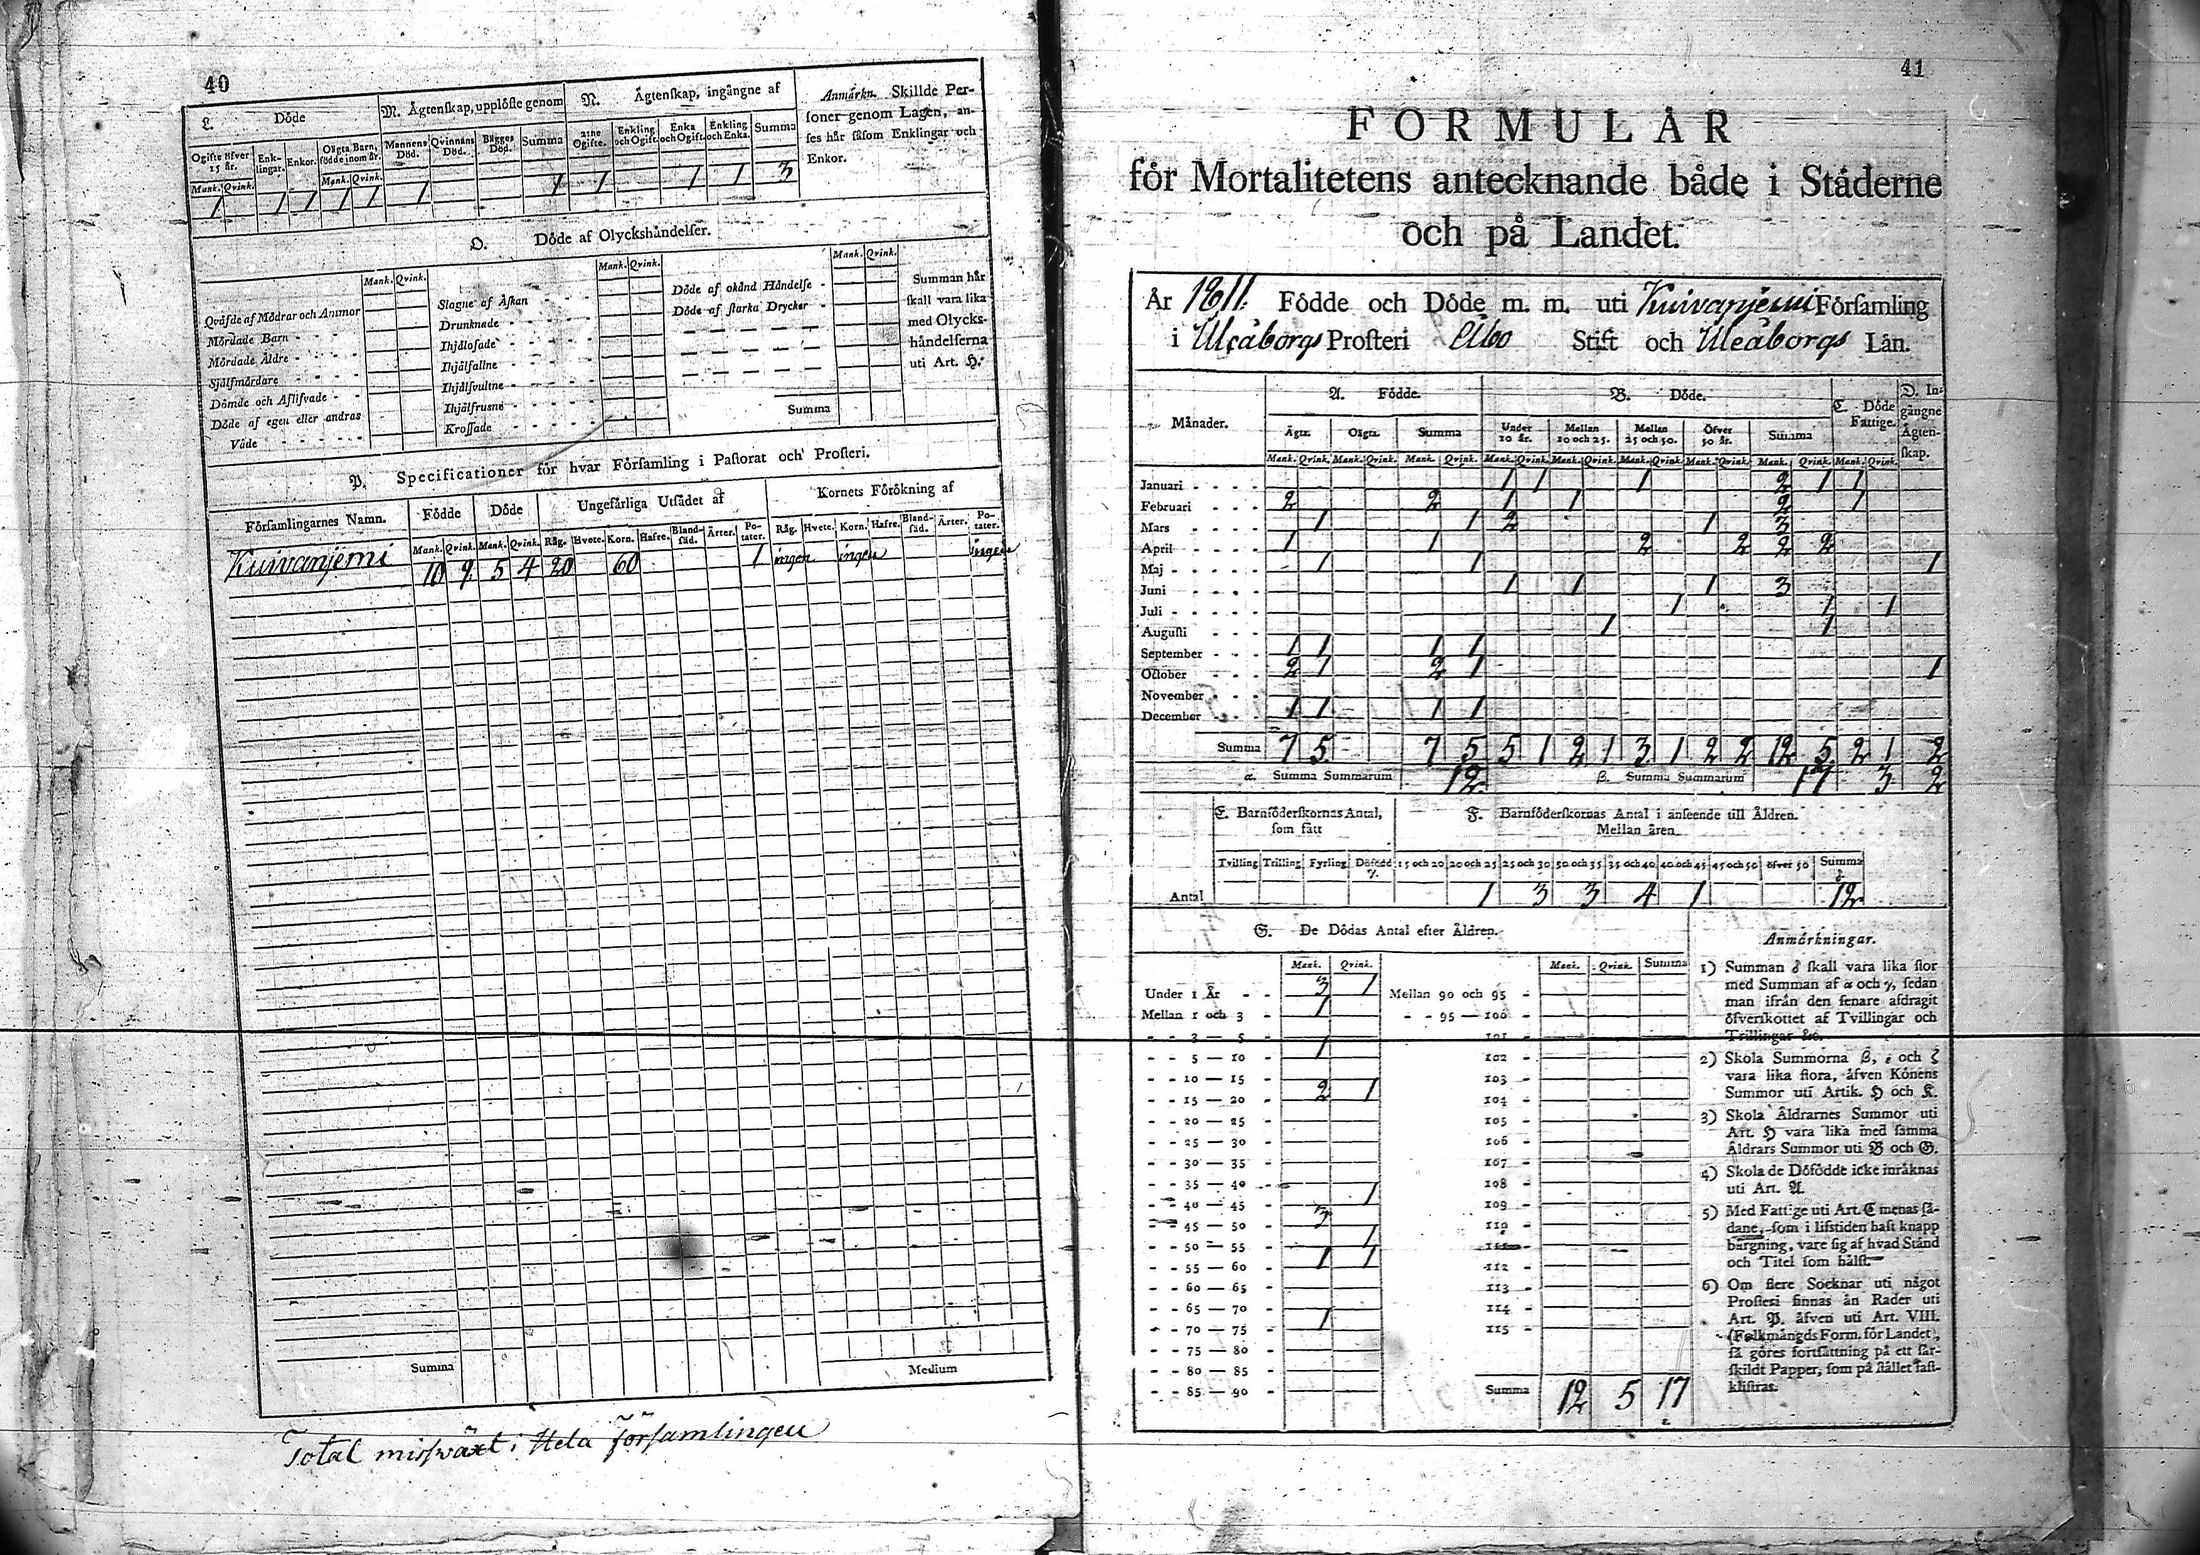 40
L. Döde
M. Ägtenskap, upplöste genom
N. Ägtenskap, ingångne af
Anmärkn. Skillde Per-
soner genom Lagen, an-
ses här såsom Enklingar och
Enkor.
Ogifte öfver 15 år. Enk-lingar. Enkor. Oägta Barn, födde inom år. Mannens Död. Qvinnans Död. Bägges Död. Summa 2:ne Ogifte. Enkling och Ogift. Enka och Ogift. Enkling och Enka. Summa
Mank. Qvink. Mank. Qvink.
1 1 1 1 1 1 1 1 1 1 3
O. Döde af Olyckshändelser.
Mank. Qvink. Mank. Qvink. Mank. Qvink.
Qväfde af Mödrar och Ammor
Mördade Barn
Mördade Äldre
Sjelfmördare
Dömde och Aflifvade
Döde af egen eller andras
Våde
Slagne af Åskan
Drunknade
Ihjälosade
Ihjälfallne
Ihjälsvultne
Ihjälfrusne
Krossade
Döde af okänd Händelse
Döde af starka Drycker
Summa
Summan här
skall vara lika
med Olycks-
händelserna
uti Art. H.
P. Specificationer för hvar Församling i Pastorat och Prosteri.
Församlingarnes Namn. Födde Döde Ungefärliga Utsädet af Kornets Förökning af
Mank. Qvink. Mank. Qvink. Råg. Hvete. Korn. Hafre. Bland-säd. Ärter. Po-tater. Råg. Hvete. Korn. Hafre. Bland-säd. Ärter. Po-tater.
Kuivanjemi 10 9 5 4 20 60 1 ingen ingen ingen
Summa Medium
Total missväxt i Hela församlingen
41
FORMULÄR
för Mortalitetens antecknande både i Städerne
och på Landet.
År 1811. Födde och Döde m. m. uti Kuivanjemi Församling
i Uleåborgs Prosteri Åbo Stift och Uleåborgs Län.
Månader. A. Födde. B. Döde. C. Döde Fattige. D. In-gångne Ägten-skap.
Ägta. Oägta. Summa Under 10 år. Mellan 10 och 25. Mellan 25 och 50. Öfver 50 år. Summa
Mank. Qvink. Mank. Qvink. Mank. Qvink. Mank. Qvink. Mank. Qvink. Mank. Qvink. Mank. Qvink. Mank. Qvink. Mank. Qvink.
Januari 1 1 1 2 1 1
Februari 2 2 1 1 2 1
Mars 1 1 2 1 3
April 1 1 2 2 2 2
Maj 1 1 1
Juni 1 1 1 3
Juli 1 1 1
Augusti 1 1
September 1 1 1 1
October 2 1 2 1 1
November
December 1 1 1 1
Summa 7 5 7 5 5 1 2 1 3 1 2 2 12 5 2 1 2
α. Summa Summarum 12. β. Summa Summarum 17 3 2
E. Barnföderskornas Antal,
som fått
F. Barnföderskornas Antal i anseende till Åldren.
Mellan åren.
Tvilling Trilling Fyrling Döfödd γ. 15 och 20 20 och 25 25 och 30 30 och 35 35 och 40 40 och 45 45 och 50 öfver 50 Summa δ.
Antal 1 3 3 4 1 12.
G. De Dödas Antal efter Åldren.
Mank. Qvink. Mank. Qvink. Summa
Under 1 År 3 1 Mellan 90 och 95
Mellan 1 och 3 1 95 — 100
3 — 5 101
5 — 10 1 102
10 — 15 103
15 — 20 2 1 104
20 — 25 105
25 — 30 106
30 — 35 107
35 — 40 108
40 — 45 1 109
45 — 50 3 110
50 — 55 1 111
55 — 60 1 1 112
60 — 65 113
65 — 70 114
70 — 75 1 115
75 — 80
80 — 85
85 — 90 Summa 12 5 17
Anmärkningar.
1) Summan δ skall vara lika stor
med Summan af α och γ, sedan
man ifrån den senare afdragit
öfverskottet af Tvillingar och
Trillingar &c.
2) Skola Summorna β, ε och ζ
vara lika stora, äfven Könens
Summor uti Artik. H och K.
3) Skola Åldrarnes Summor uti
Art. H vara lika med samma
Åldrars Summor uti B och G.
4) Skola de Döfödde icke inräknas
uti Art. A.
5) Med Fattige uti Art. C menas så-
dane, som i lifstiden haft knapp
bärgning, vare sig af hvad Stånd
och Titel som hälst.
6) Om flere Socknar uti något
Prosteri finnas än Rader uti
Art. P. äfven uti Art. VIII.
(Folkmängds Form. för Landet),
så göres fortsättning på ett sär-
skildt Papper, som på stället fast-
klistras.